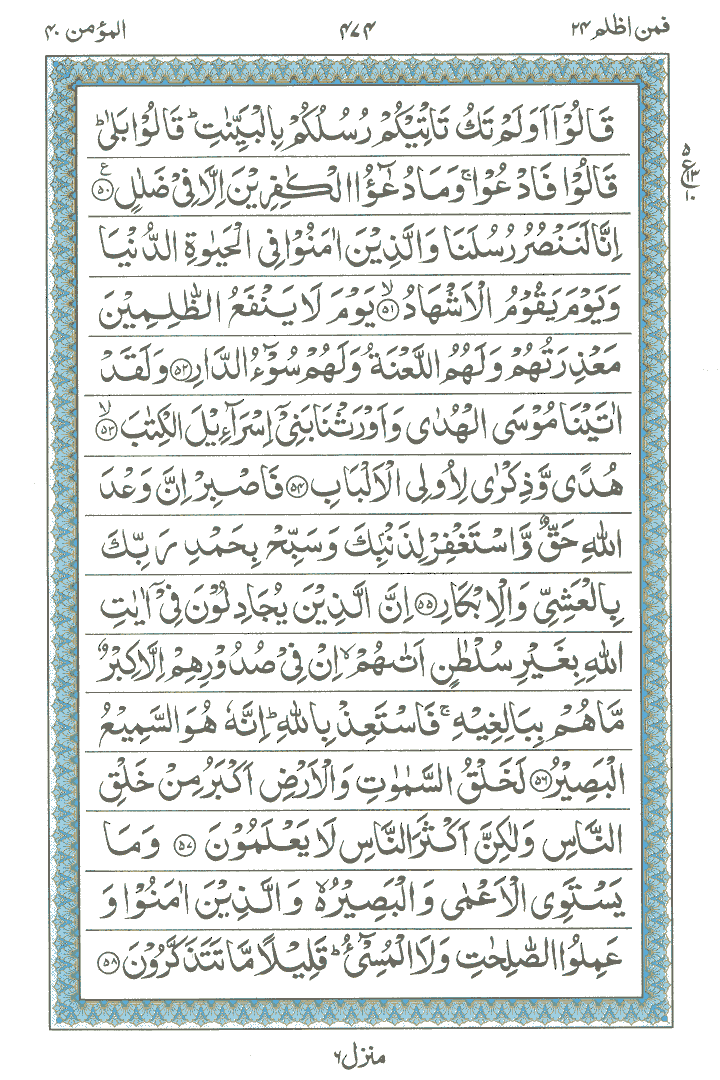 المؤمن ٤٠ ٤٧٤ فمن اظلم ٢٤
قَالُوْۤا اَوَلَمْ تَكُ تَاْتِيْكُمْ رُسُلُكُمْ بِالْبَيِّنٰتِ ؕ قَالُوْا بَلٰى ؕ
قَالُوْا فَادْعُوْا ۚ وَمَا دُعٰٓؤُا الْكٰفِرِيْنَ اِلَّا فِيْ ضَلٰلٍ ۧ ﴿٥٠﴾
اِنَّا لَنَنْصُرُ رُسُلَنَا وَالَّذِيْنَ اٰمَنُوْا فِي الْحَيٰوةِ الدُّنْيَا
وَيَوْمَ يَقُوْمُ الْاَشْهَادُ ۙ ﴿٥١﴾ يَوْمَ لَا يَنْفَعُ الظّٰلِمِيْنَ
مَعْذِرَتُهُمْ وَلَهُمُ اللَّعْنَةُ وَلَهُمْ سُوْٓءُ الدَّارِ ﴿٥٢﴾ وَلَقَدْ
اٰتَيْنَا مُوْسَى الْهُدٰى وَاَوْرَثْنَا بَنِيْۤ اِسْرَآءِيْلَ الْكِتٰبَ ۙ ﴿٥٣﴾
هُدًى وَّذِكْرٰى لِاُولِي الْاَلْبَابِ ﴿٥٤﴾ فَاصْبِرْ اِنَّ وَعْدَ
اللّٰهِ حَقٌّ وَّاسْتَغْفِرْ لِذَنْۢبِكَ وَسَبِّحْ بِحَمْدِ رَبِّكَ
بِالْعَشِيِّ وَالْاِبْكَارِ ﴿٥٥﴾ اِنَّ الَّذِيْنَ يُجَادِلُوْنَ فِيْۤ اٰيٰتِ
اللّٰهِ بِغَيْرِ سُلْطٰنٍ اَتٰىهُمْ ۙ اِنْ فِيْ صُدُوْرِهِمْ اِلَّا كِبْرٌ
مَّا هُمْ بِبَالِغِيْهِ ۚ فَاسْتَعِذْ بِاللّٰهِ ؕ اِنَّهٗ هُوَ السَّمِيْعُ
الْبَصِيْرُ ﴿٥٦﴾ لَخَلْقُ السَّمٰوٰتِ وَالْاَرْضِ اَكْبَرُ مِنْ خَلْقِ
النَّاسِ وَلٰكِنَّ اَكْثَرَ النَّاسِ لَا يَعْلَمُوْنَ ﴿٥٧﴾ وَمَا
يَسْتَوِي الْاَعْمٰى وَالْبَصِيْرُ ۙ وَالَّذِيْنَ اٰمَنُوْا وَ
عَمِلُوا الصّٰلِحٰتِ وَلَا الْمُسِيْٓءُ ؕ قَلِيْلًا مَّا تَتَذَكَّرُوْنَ ﴿٥٨﴾
٥
ع ١٣
١٠
منزل ٦